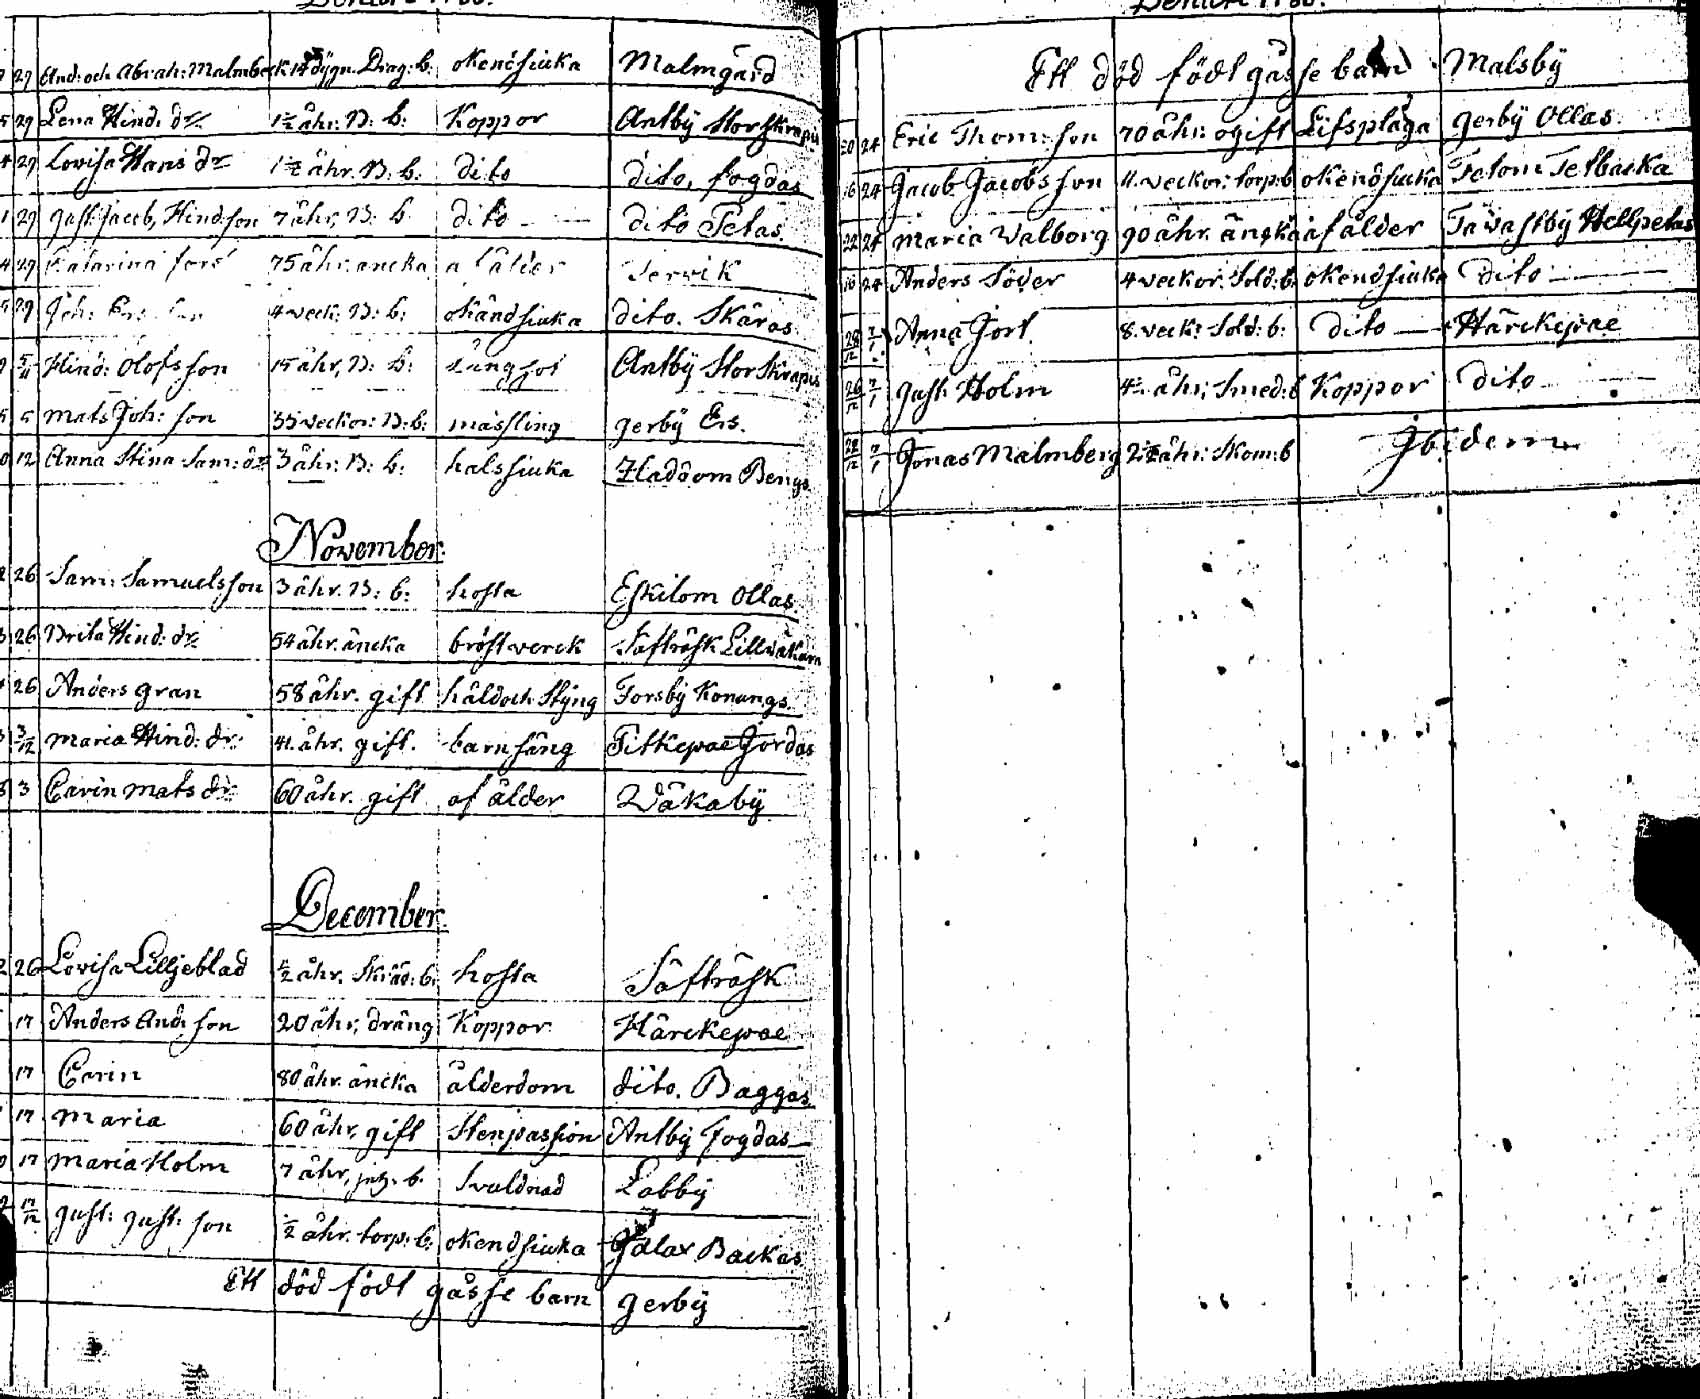 29 And: och Abrah: Malmberk 14 dygn. Drag: b. okendsiuka Malmgård
29 Lena Hind: dr. 1½ åhr. B: b: Koppor Antby Storskrapus
29 Lovisa Hans dr 1½ åhr. B. b: dito dito, fogdas
29 Gust: Jacob, Hind:son 7 åhr, B: b. dito dito Petas.
29 Katarina fors 75 åhr. ancka ålder Serwik
29 Joh: 4 veck: B: b: okändsiuka dito. Skåras
5/11 Hind: Olofsson 15 åhr, B: b: Lungsot Antby Storskrapus
5 Mats Joh: son 35 veckor: B: b: mässling gerby Ers.
12 Anna Stina Sam: dr 3 åhr: B: b: halssiuka Haddom Bengs.
November.
26 Sam: Samuelsson 3 åhr. B: b: hosta Eskilom Ollas.
26 Brita Hind: dr 54 åhr. äncka bröstverck Säfträsk
26 Anders Gran 58 åhr. gift håldoch Styng Forsby Konungs.
3/12 Maria Hind: dr. 41. åhr. gift. barnsäng Pitkepae Jordas
3 Carin Mats dr. 60 åhr. gift af ålder Wåkaby
December.
26 Lovisa Lilljeblad ½ åhr. Skräd: b. hosta Säfträsk
17 Anders And: son 20 åhr, dräng Koppor Härckepae
17 Carin 80 åhr. äncka ålderdom dito. Baggas
17 Maria 60 åhr, gift Stenpassion Antby Fogdas
17 Maria Holm 7 åhr, b. Svuldnad Labby
17/12 Gust: Gust: son ½ åhr. torp: b: okendsiuka Backas
Ett död födt gåsse barn gerby
Ett död födt gåsse barn Malsby
20 24 Eric Thom: son 70 åhr. ogift Lifsplåga gerby Ollas.
16 24 Jacob Jacobsson 11. veckor: torp: b okendsiucka Fatom Telbacka
22 24 Maria Walborg 90 åhr. äncka af ålder Tawastby Hellpetas
16 24 Anders Söder 4 veckor. Sold: b: okendsiuka dito
28/12 7/1 Anna Jort. 8. veck: Sold: b: dito Härckepae
26/12 7/1 Gust: Holm 4½ åhr, Smed: b Koppor dito
28/12 7/1 Jonas Malmberg 2½ åhr: Skom: b Ibidem